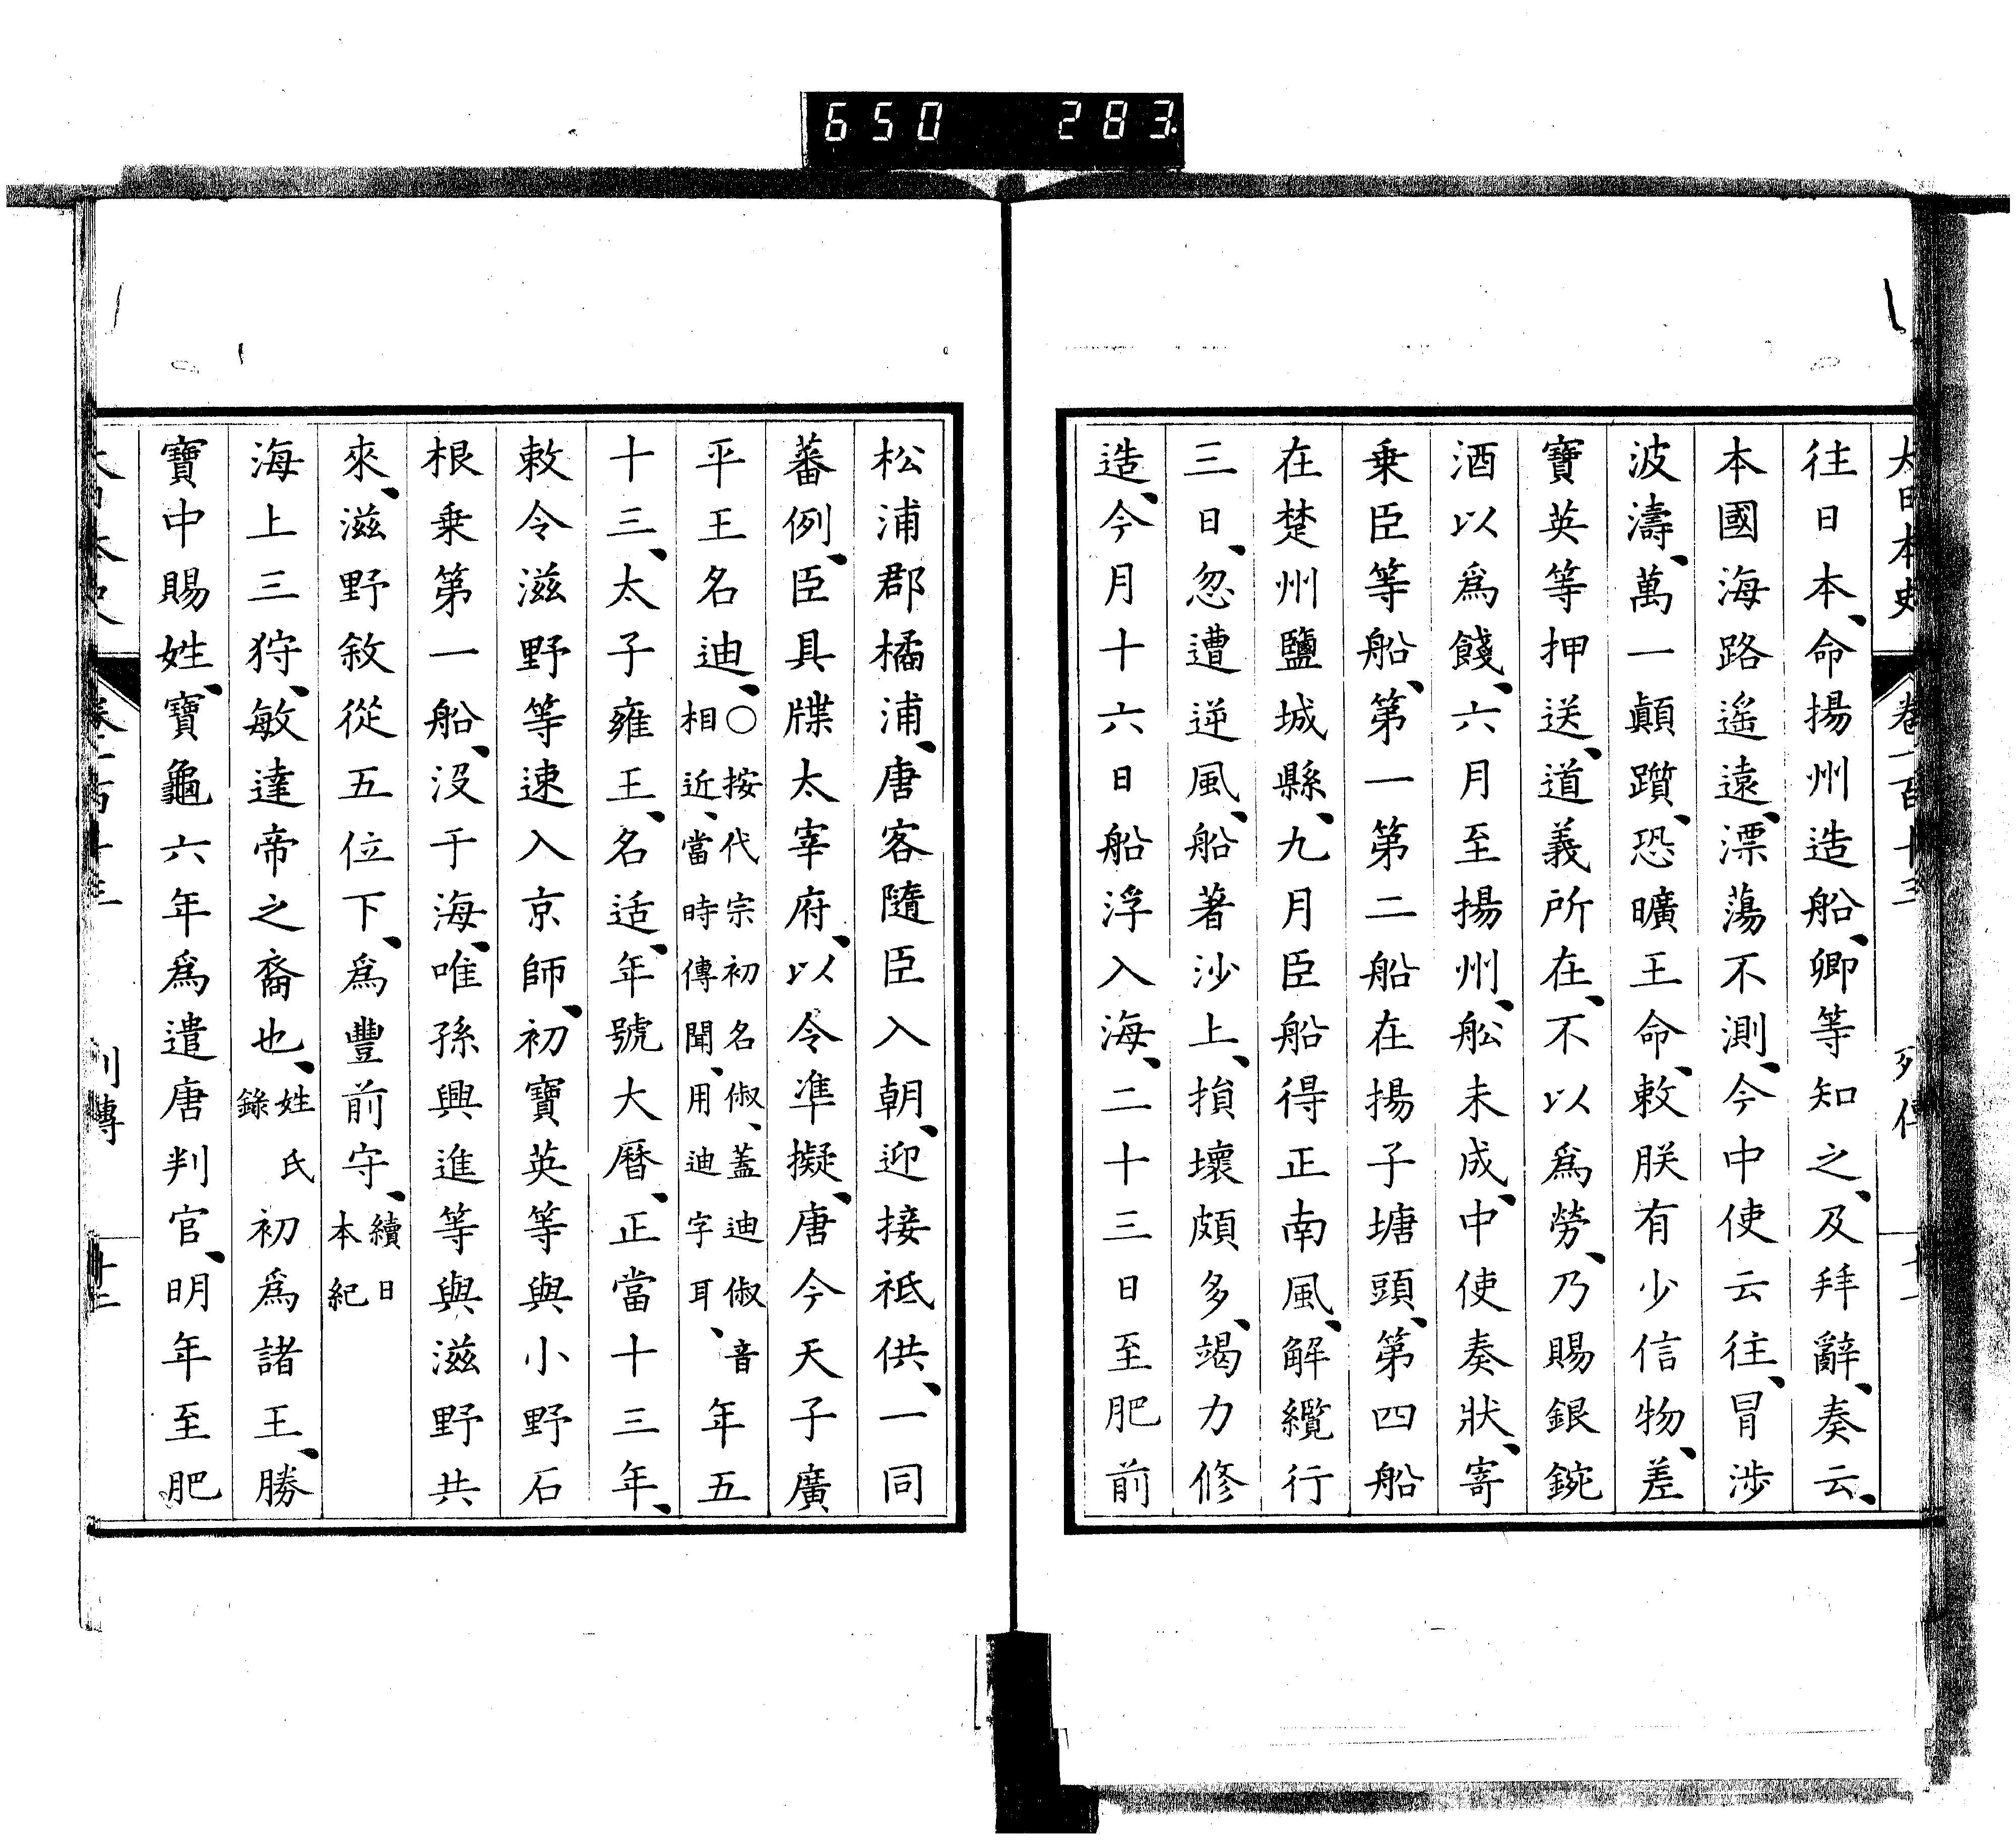 650 283
大日本史 卷一百十三 列傳
往日本、命揚州造船、卿等知之、及拜辭、奏云、
本國海路遙遠、漂蕩不測、今中使云往、冒涉
波濤、萬一顛躓、恐曠王命、敕朕有少信物、差
寶英等押送、道義所在、不以爲勞、乃賜銀鋺
酒以爲餞、六月至揚州、舩未成、中使奏狀、寄
乗臣等船、第一第二船在揚子塘頭、第四船
在楚州鹽城縣、九月臣船得正南風、解纜行
三日、忽遭逆風、船著沙上、損壞頗多、竭力修
造、今月十六日船浮入海、二十三日至肥前
松浦郡橘浦、唐客隨臣入朝、迎接祗供、一同
蕃例、臣具牒太宰府、以令準擬、唐今天子廣
平王名迪、〇按代宗初名俶、蓋迪俶音相近、當時傳聞、用迪字耳、年五
十三、太子雍王、名适、年號大曆、正當十三年、
敕令滋野等速入京師、初寶英等與小野石
根乗第一船、沒于海、唯孫興進等與滋野共
來、滋野敘從五位下、爲豐前守、續日本紀
海上三狩、敏達帝之裔也、姓氏錄初爲諸王、勝
寶中賜姓、寶龜六年爲遣唐判官、明年至肥
大日本史 卷一百十三 列傳 十二